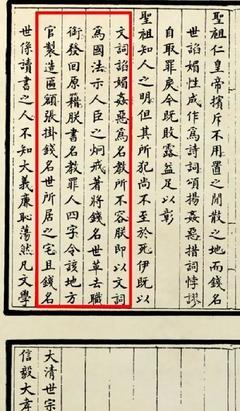 聖祖仁皇帝擯斥不用置之閒散之地而錢名
世諂媚性成作爲詩詞頌揚姦惡措詞悖謬
自取罪戾今旣敗露益足以彰
聖祖知人之明但其所犯尚不至於死伊旣以
文詞諂媚姦惡爲名教所不容朕卽以文詞
爲國法示人臣之炯戒著將錢名世革去職
銜發回原籍朕書名教罪人四字令該地方
官製造匾額張掛錢名世所居之宅且錢名
世係讀書之人不知大義廉恥蕩然凡文學
大清世宗
信毅大孝